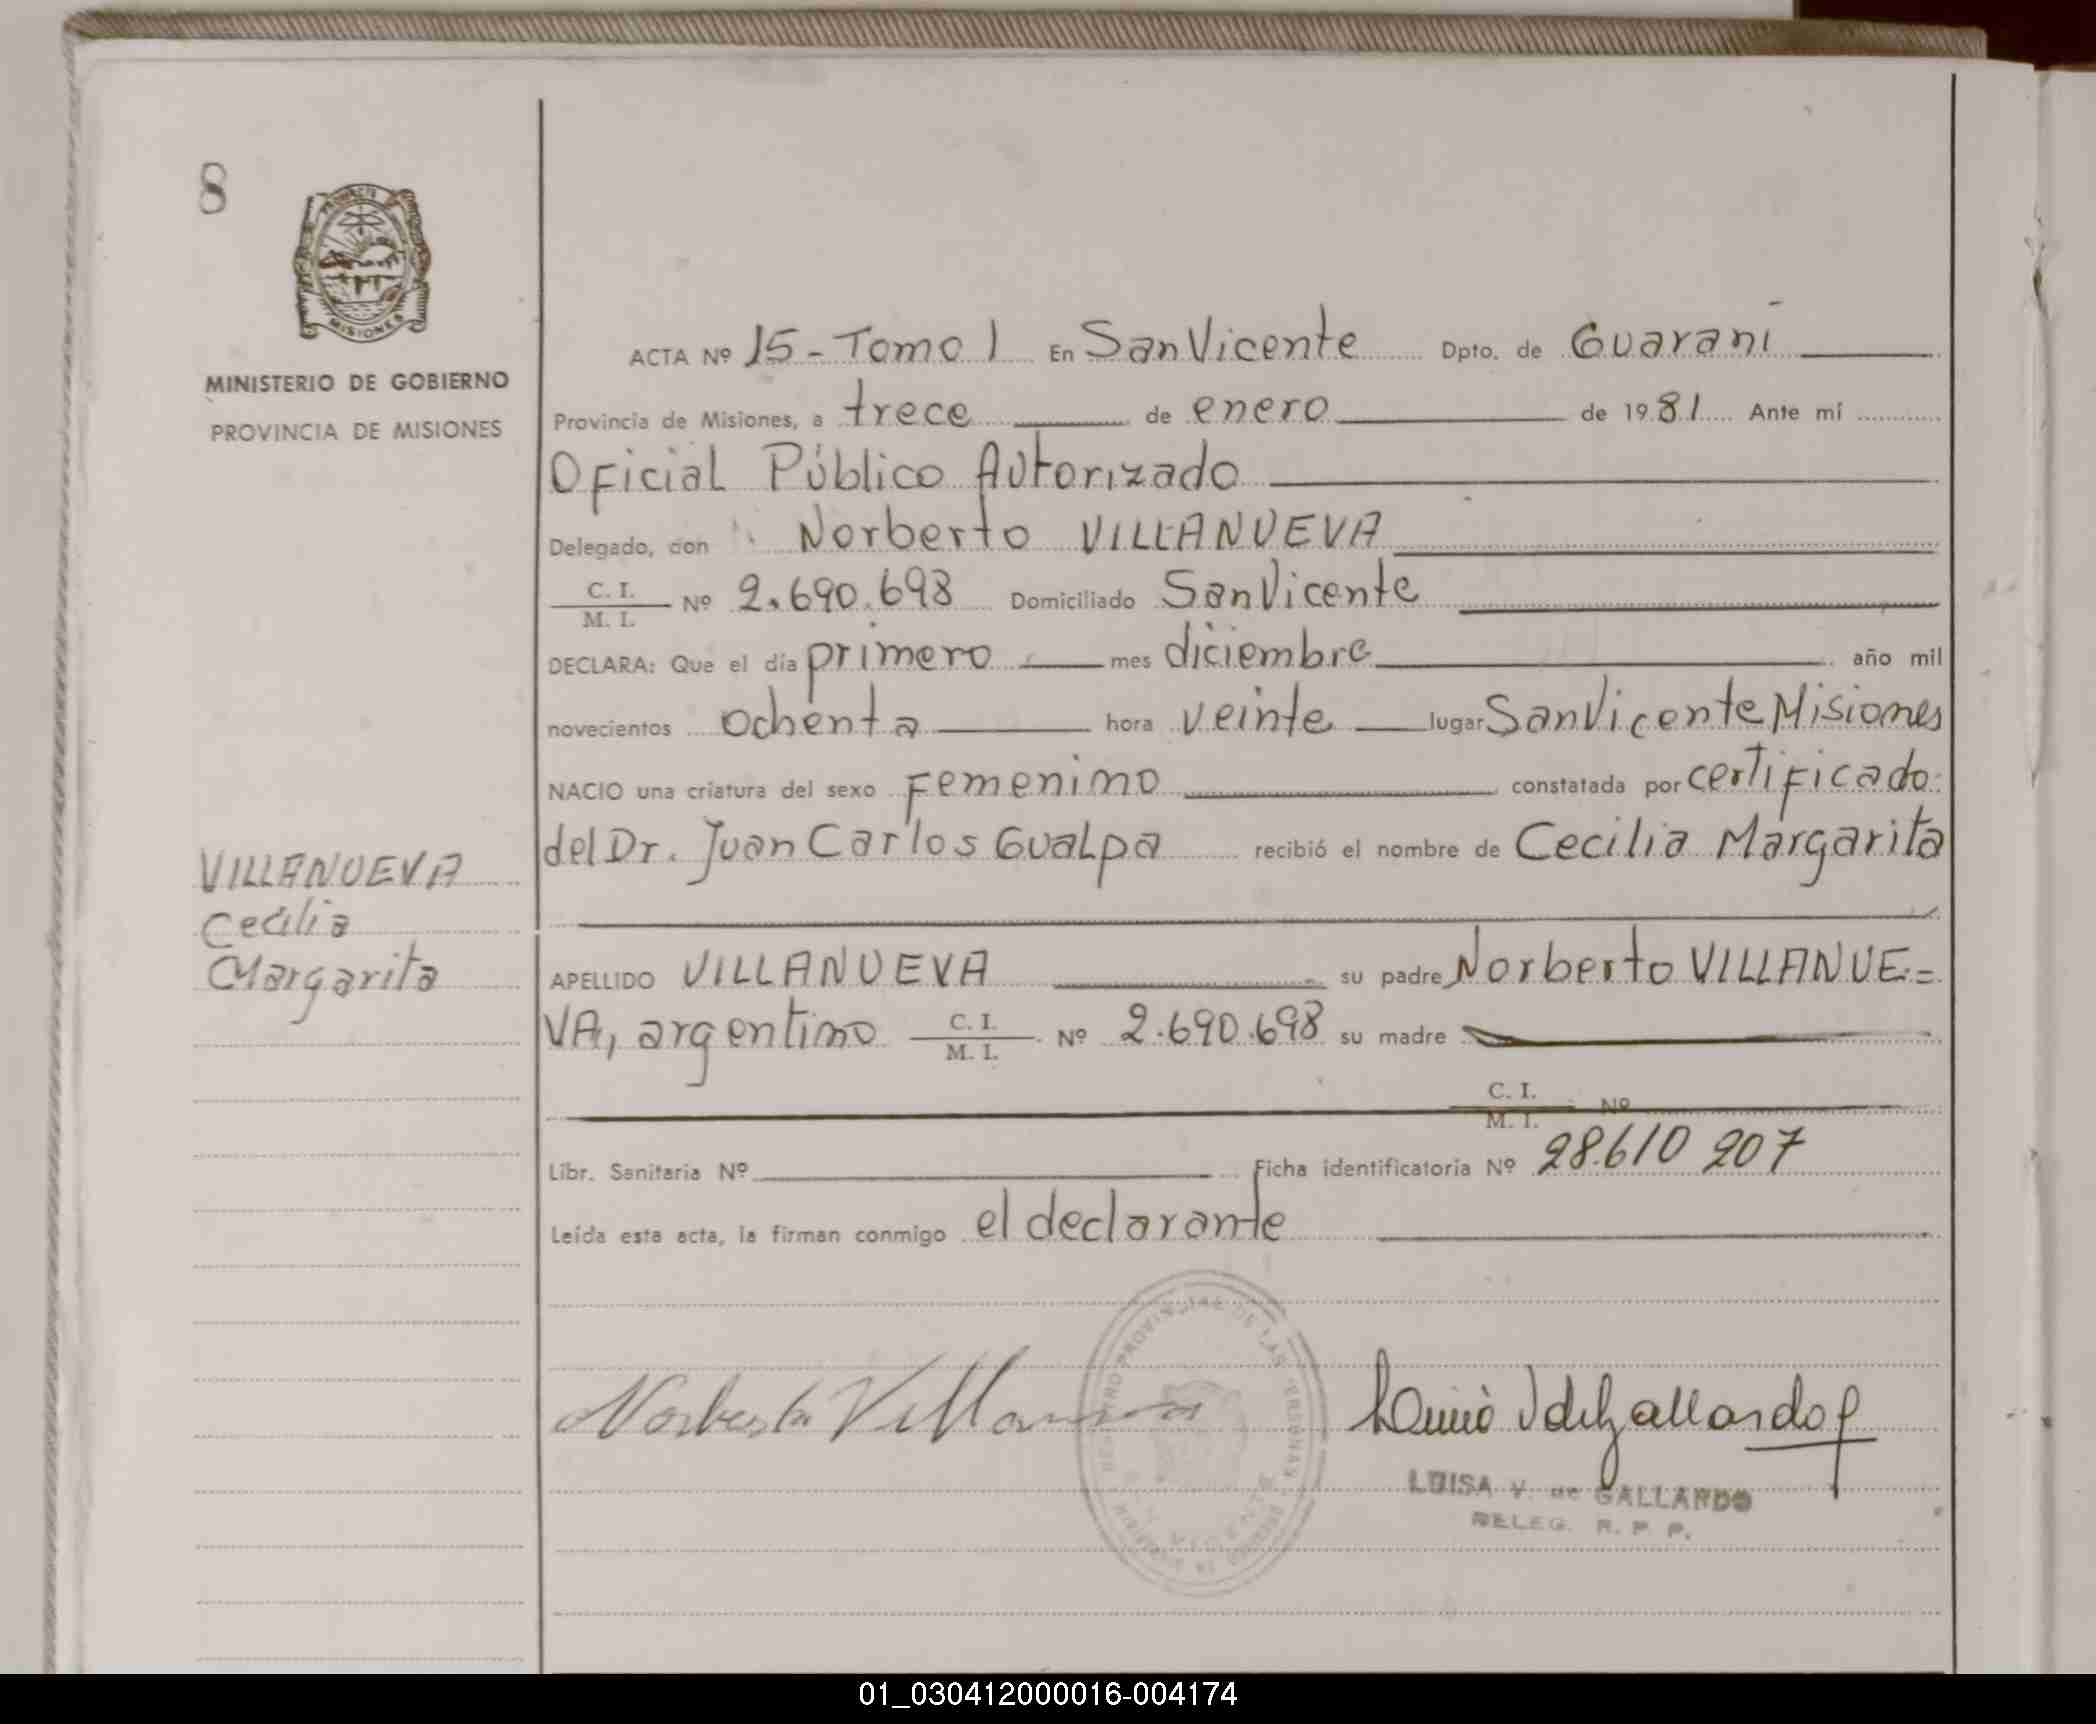 8
MISIONES
MINISTERIO DE GOBIERNO
PROVINCIA DE MISIONES
VILLANUEVA
Cecilia
Margarita
ACTA Nº 15 - Tomo 1 En San Vicente Dpto. de Guaraní
Provincia de Misiones, a trece de enero de 1981 Ante mí
Oficial Público Autorizado
Delegado, don Norberto VILLANUEVA
C. I.
M. I. Nº 2.690.698 Domiciliado San Vicente
DECLARA: Que el día primero mes diciembre año mil
novecientos ochenta hora veinte lugar San Vicente Misiones
NACIO una criatura del sexo Femenino constatada por certificado
del Dr. Juan Carlos Gualpa recibió el nombre de Cecilia Margarita
APELLIDO VILLANUEVA su padre Norberto VILLANUE=
VA, argentino C. I. M. I. Nº 2.690.698 su madre
C. I.
M. I. Nº
Libr. Sanitaria Nº Ficha identificatoria Nº 28.610 207
Leída esta acta, la firman conmigo el declarante
Norberto Villanueva
LUISA V. de GALLARDO
DELEG. R. P. P.
01_030412000016-004174